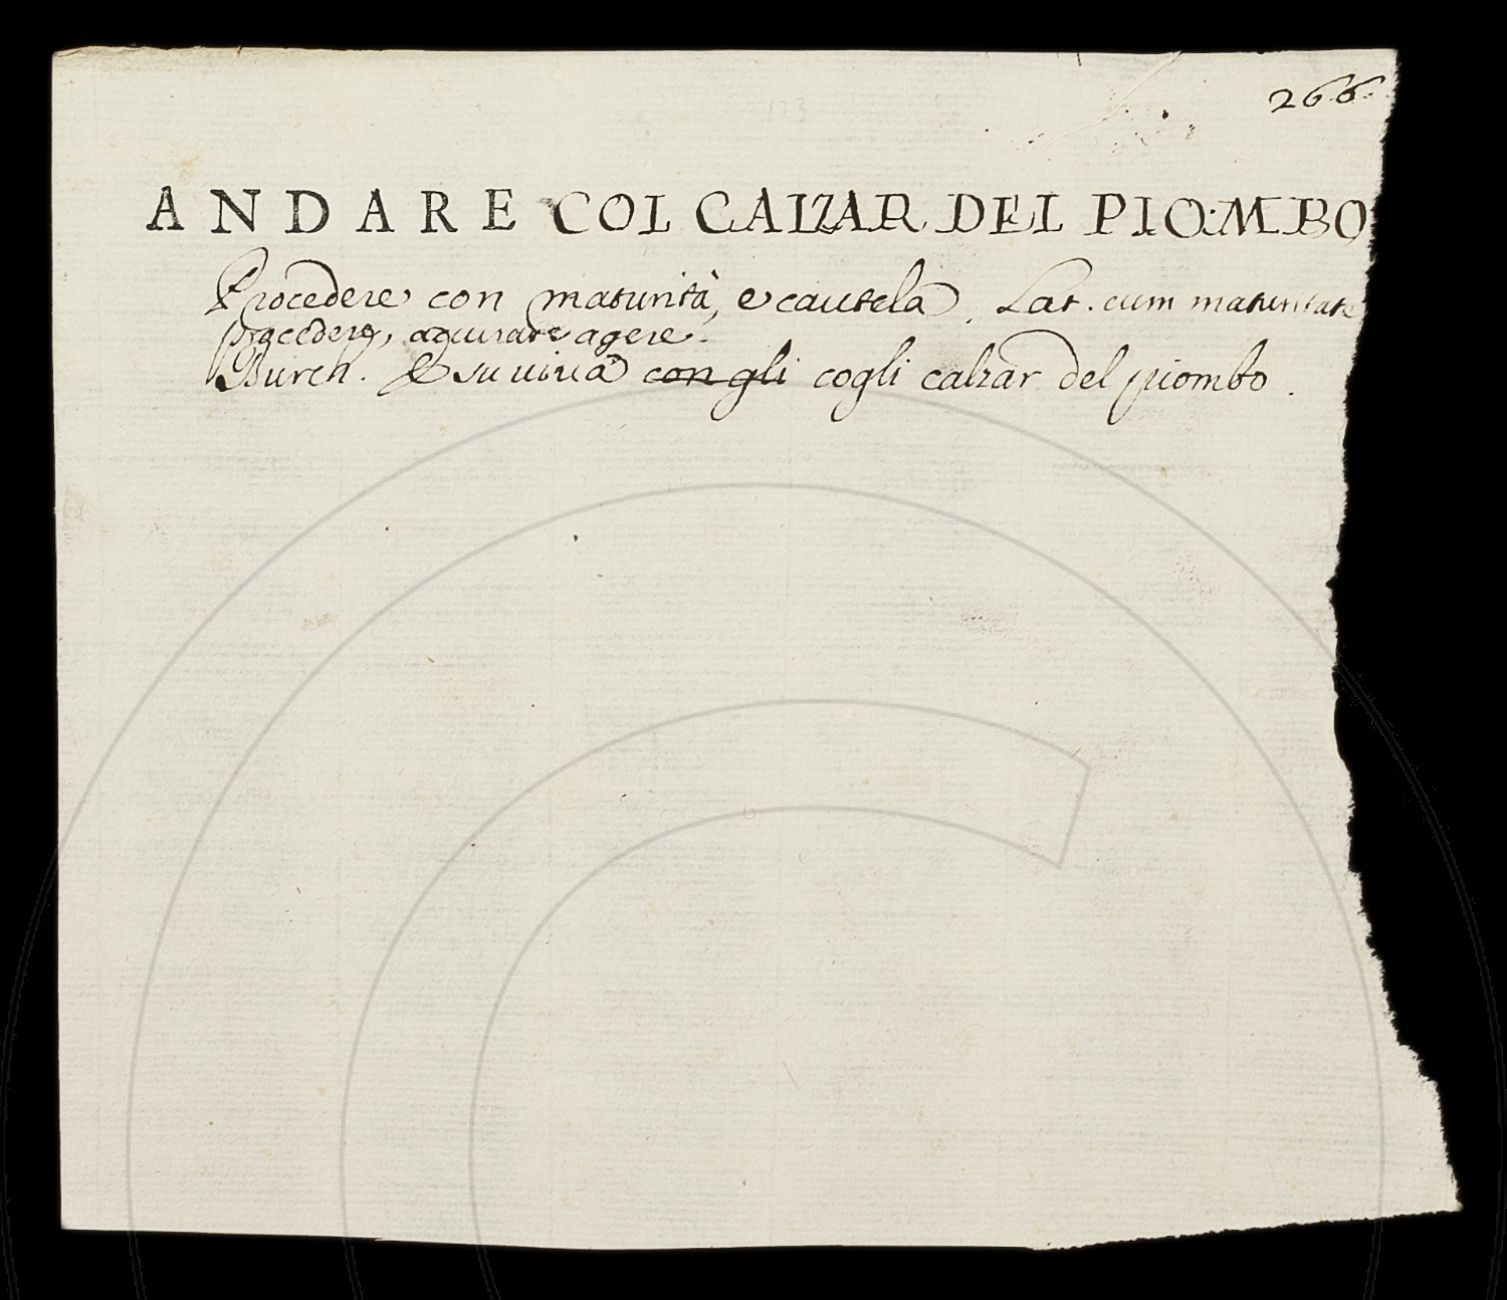 266.
ANDARE COL CALZAR DEL PIOMBO
Procedere con maturità, e cautela. Lat. cum maturitate
procedere, accurate agere.
Burch. E su viva ~~con gli~~ cogli calzar del piombo.